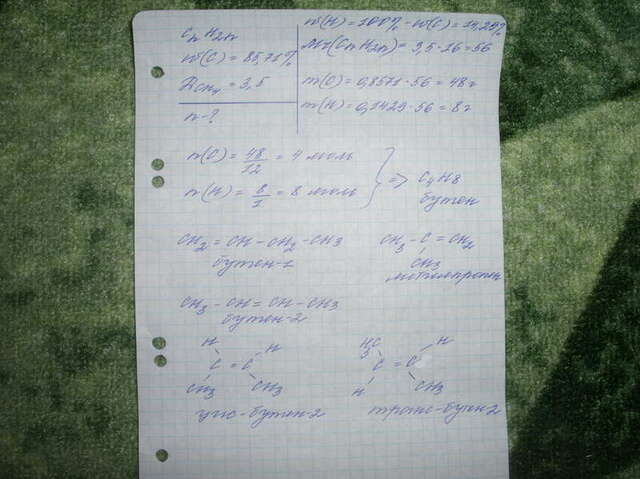 CnH2n
w(C) = 85,71%
DCH4 = 3,5
n-?
w(H) = 100% - w(C) = 14,29%
Mr(CnH2n) = 3,5·16 = 56
m(C) = 0,8571·56 = 48г
m(H) = 0,1429·56 = 8г
n(C) = 48/12 = 4 моль
n(H) = 8/1 = 8 моль
=> C4H8
бутен
CH2 = CH - CH2 - CH3
бутен-1
CH3 - C = CH2
CH3
метилпропен
CH3 - CH = CH - CH3
бутен-2
H H
C = C
CH3 CH3
цис-бутен-2
H3C H
C = C
H CH3
транс-бутен-2